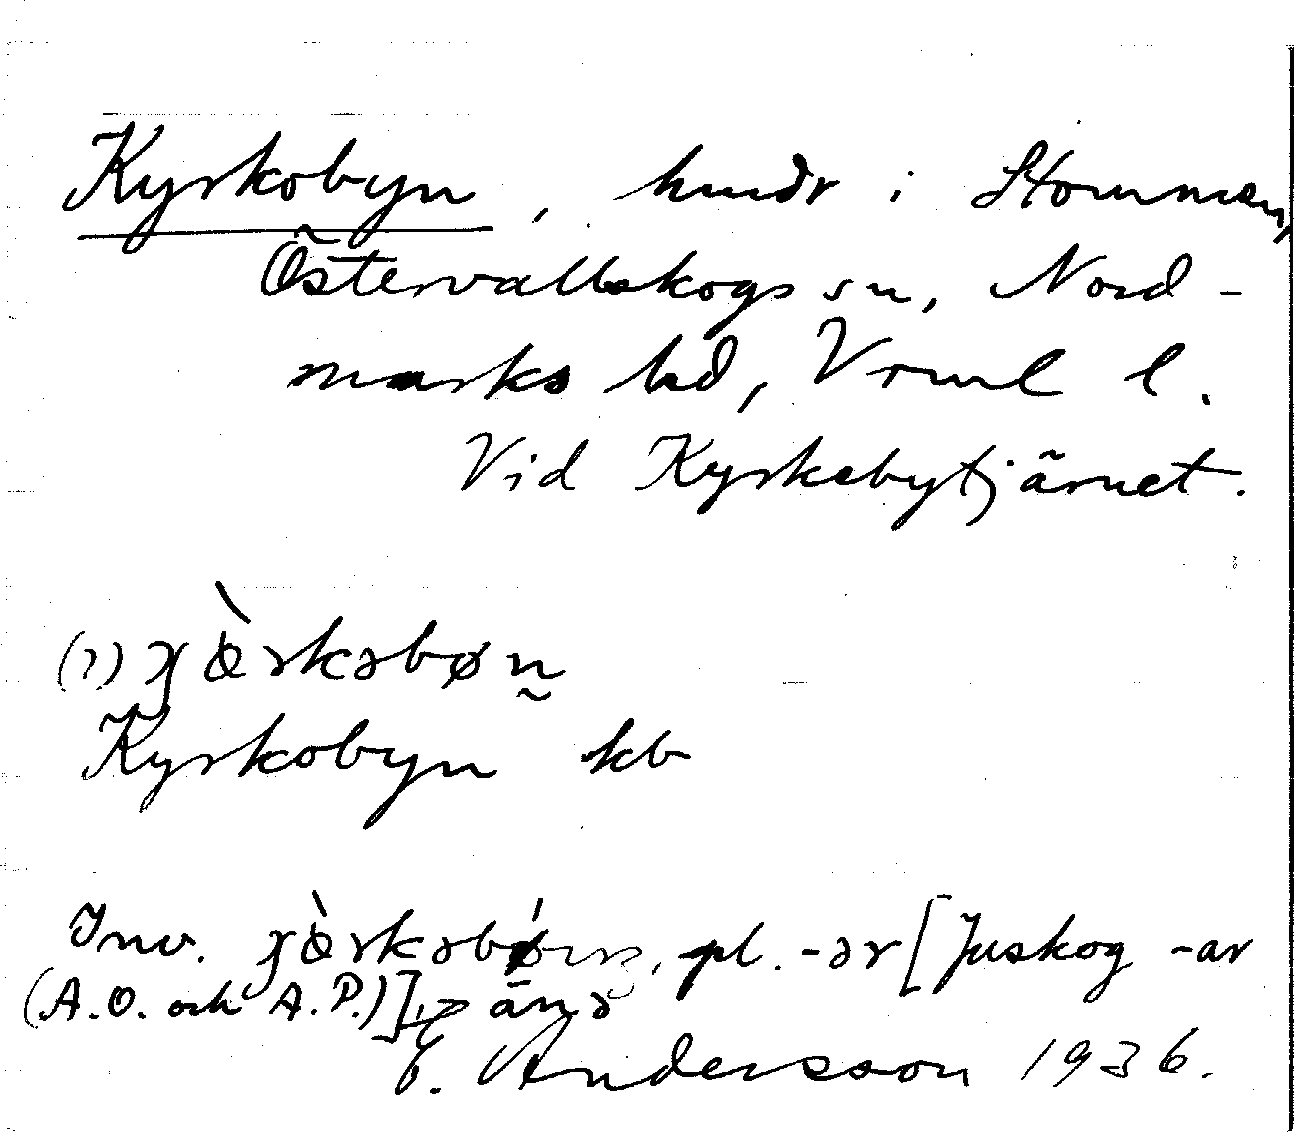 Kyrkobyn, hmdr i Stommen,
Östervallskogs sn, Nord-
marks hd, Vrml l.
Vid Kyrkebytjärnet.
Kyrkobyn kb
Inv. pl. -ər [Juskog -ar
(A.O. och A.P.)]
E. Andersson 1936.